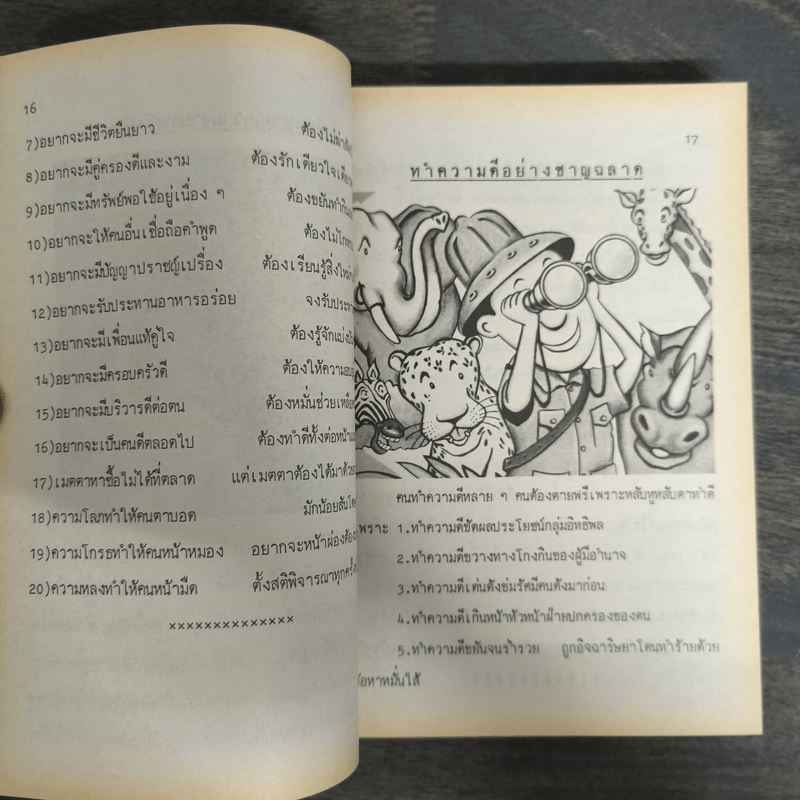 16
7)อยากจะมีชีวิตยืนยาว ต้องไม่ฆ่า
8)อยากจะมีคู่ครองดีและงาม ต้องรักเดียวใจเดียว
9)อยากจะมีทรัพย์พอใช้อยู่เนื่อง ๆ ต้องขยันทำกิน
10)อยากจะให้คนอื่นเชื่อถือคำพูด ต้องไม่โกหก
11)อยากจะมีปัญญาปราชญ์เปรื่อง ต้องเรียนรู้สิ่งใหม่
12)อยากจะรับประทานอาหารอร่อย จงรับประทาน
13)อยากจะมีเพื่อนแท้คู่ใจ ต้องรู้จักแบ่งปัน
14)อยากจะมีครอบครัวดี ต้องให้ความอบ
15)อยากจะมีบริวารดีต่อตน ต้องหมั่นช่วยเหลือ
16)อยากจะเป็นคนดีตลอดไป ต้องทำดีทั้งต่อหน้า
17)เมตตาหาซื้อไม่ได้ที่ตลาด แต่เมตตาต้องได้มาด้วย
18)ความโลภทำให้คนตาบอด มักน้อยสันโดษ
19)ความโกรธทำให้คนหน้าหมอง อยากจะหน้าผ่องต้อง
20)ความหลงทำให้คนหน้ามืด ตั้งสติพิจารณาทุกครั้ง
××××××××××××××
17
ทำความดีอย่างชาญฉลาด
คนทำความดีหลาย ๆ คนต้องตายฟรีเพราะหลับหูหลับตาทำดี
เพราะ 1.ทำความดีขัดผลประโยชน์กลุ่มอิทธิพล
2.ทำความดีขวางทางโกงกินของผู้มีอำนาจ
3.ทำความดีเด่นดังข่มรัศมีคนดังมาก่อน
4.ทำความดีเกินหน้าหัวหน้าฝ่ายปกครองของตน
5.ทำความดีขยันจนร่ำรวย ถูกอิจฉาริษยาโดนทำร้ายด้วย
ข้อหาหมั่นไส้